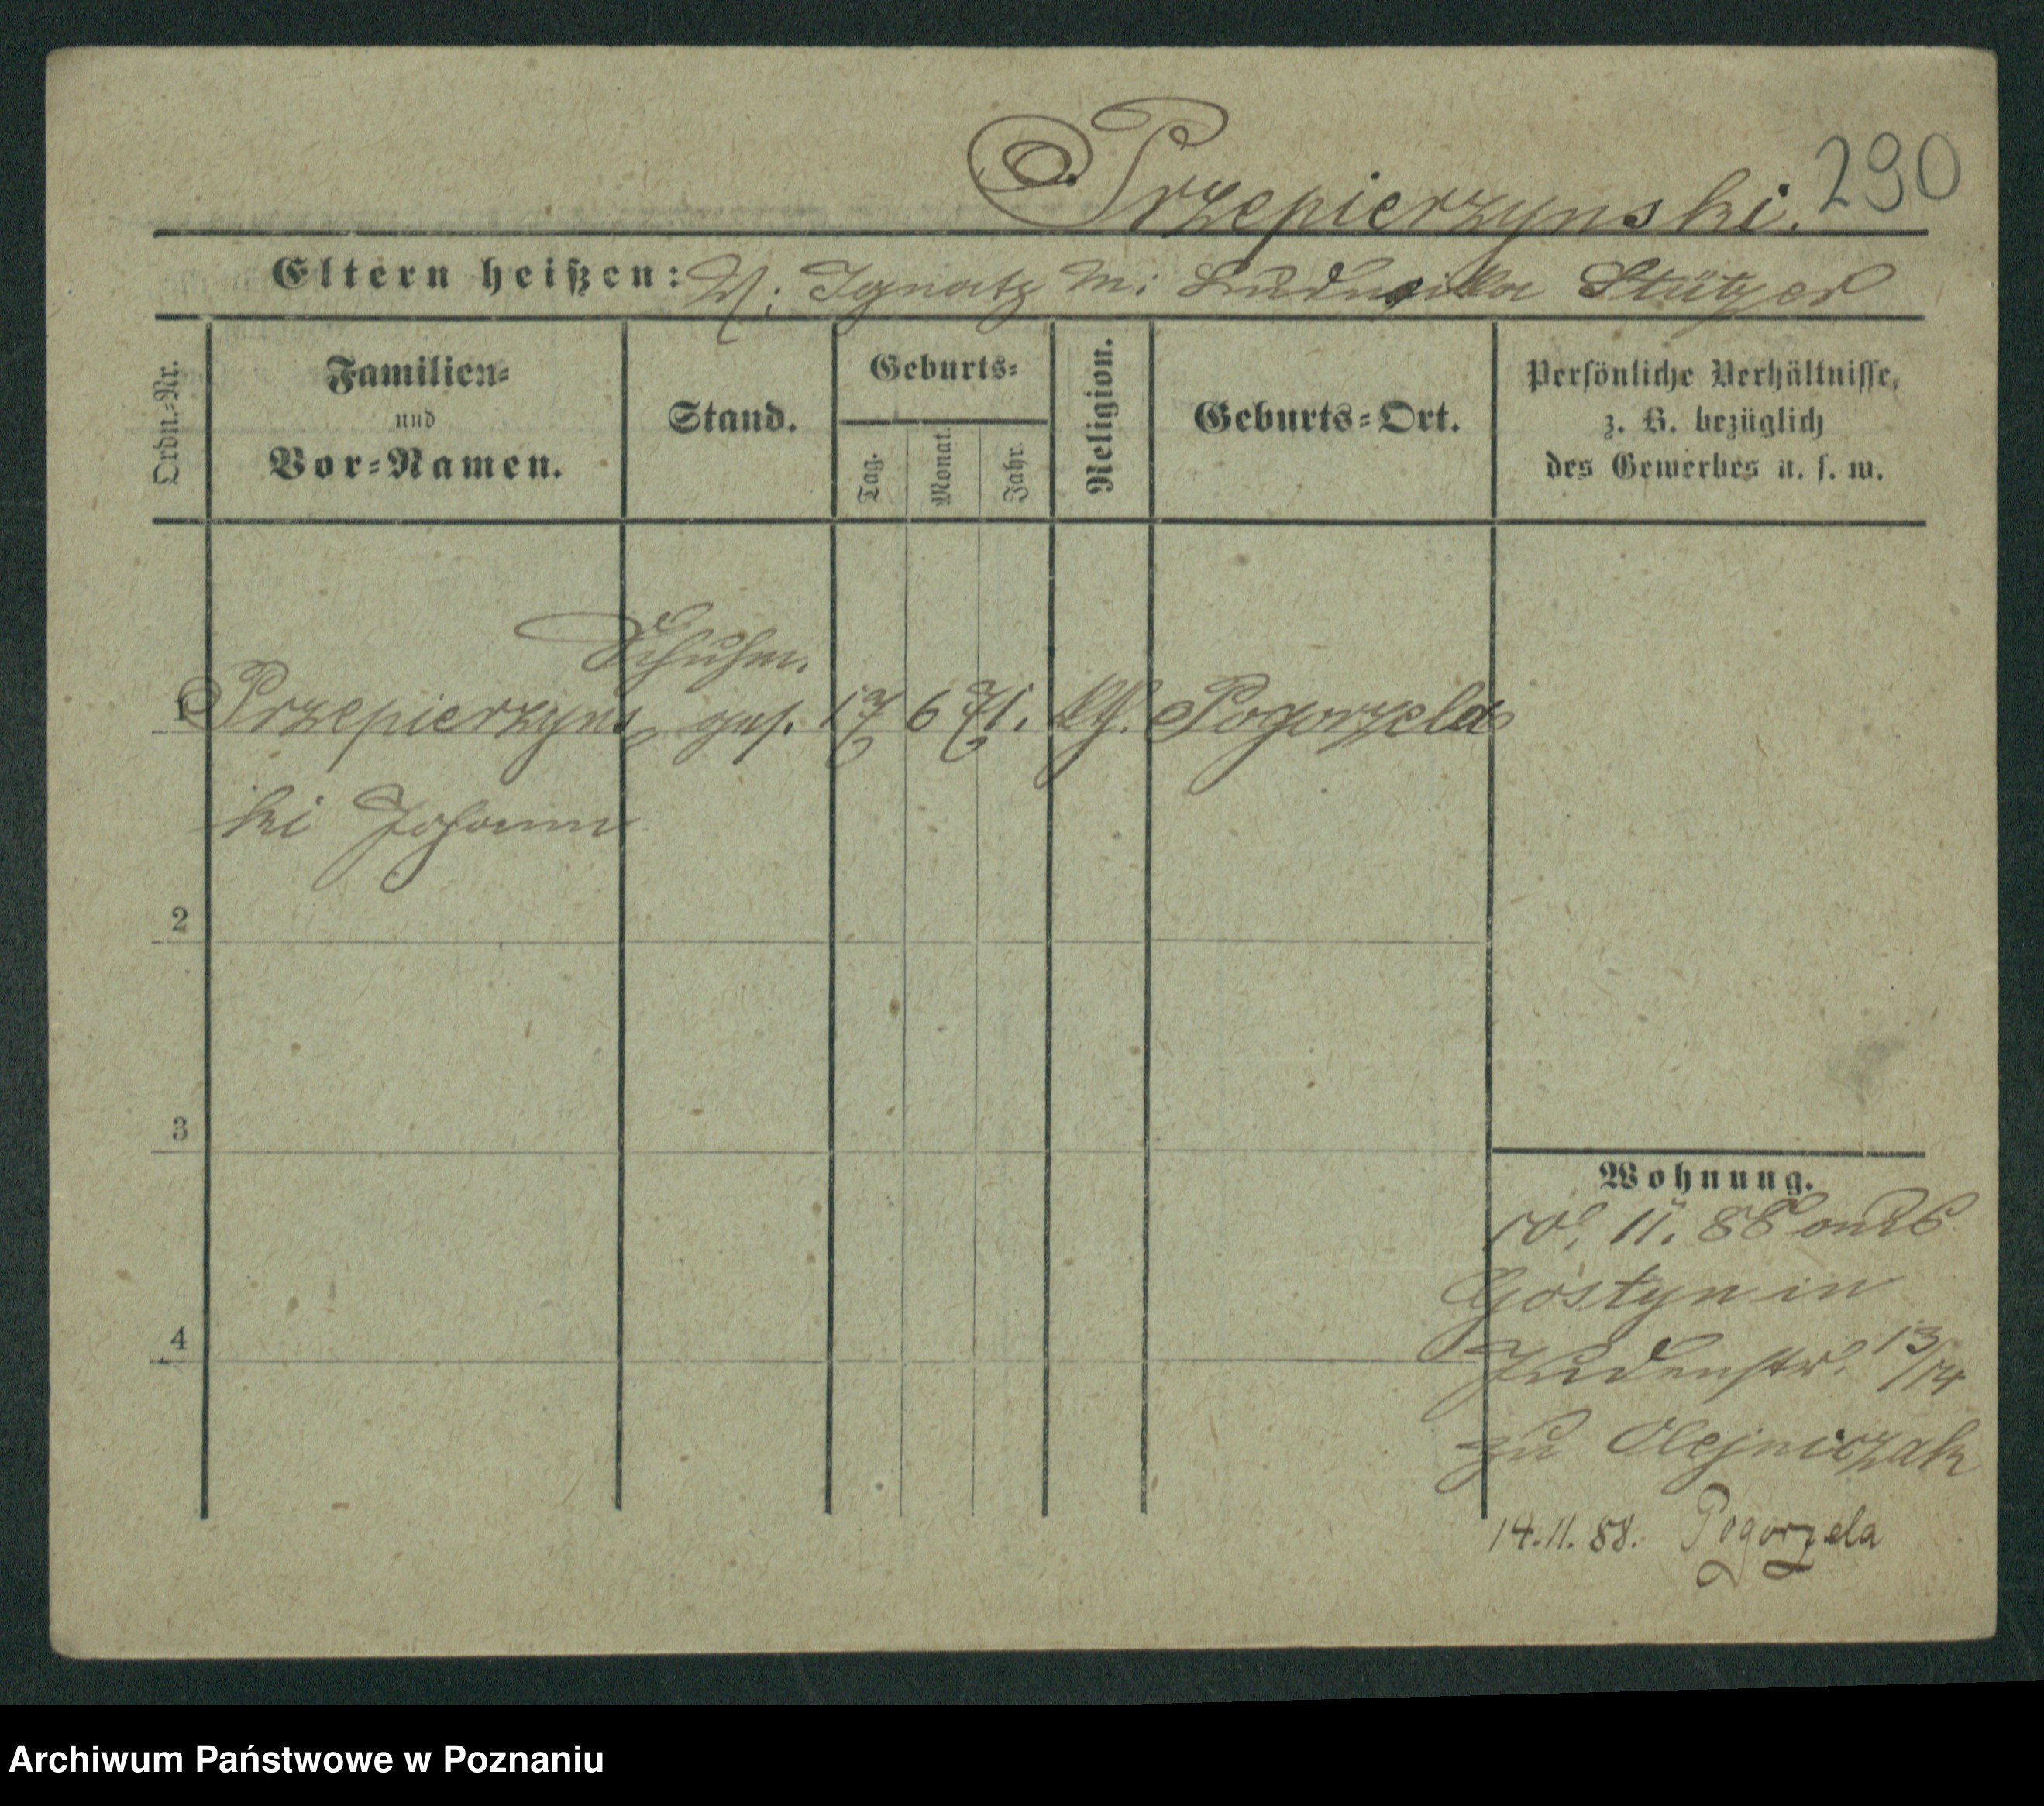 Przepierzynski. 290
Eltern heißen: V: Ignatz M: Ludwika Stützer
Ordn.-Nr.
Familien-
und
Vor-Namen.
Stand.
Geburts-
Tag.
Monat.
Jahr.
Religion.
Geburts-Ort.
Persönliche Verhältnisse,
z. B. bezüglich
des Gewerbes u. s. w.
Schuhm.
1 Przepierzyns ges. 17 6 71. kth. Pogorzela
ki Johann
2
3
4
Wohnung.
10. 11. 88 aus
Gostyn in
Judenstr. 13/14
zu Olejniczak
14.11.88. Pogorzela
Archiwum Państwowe w Poznaniu